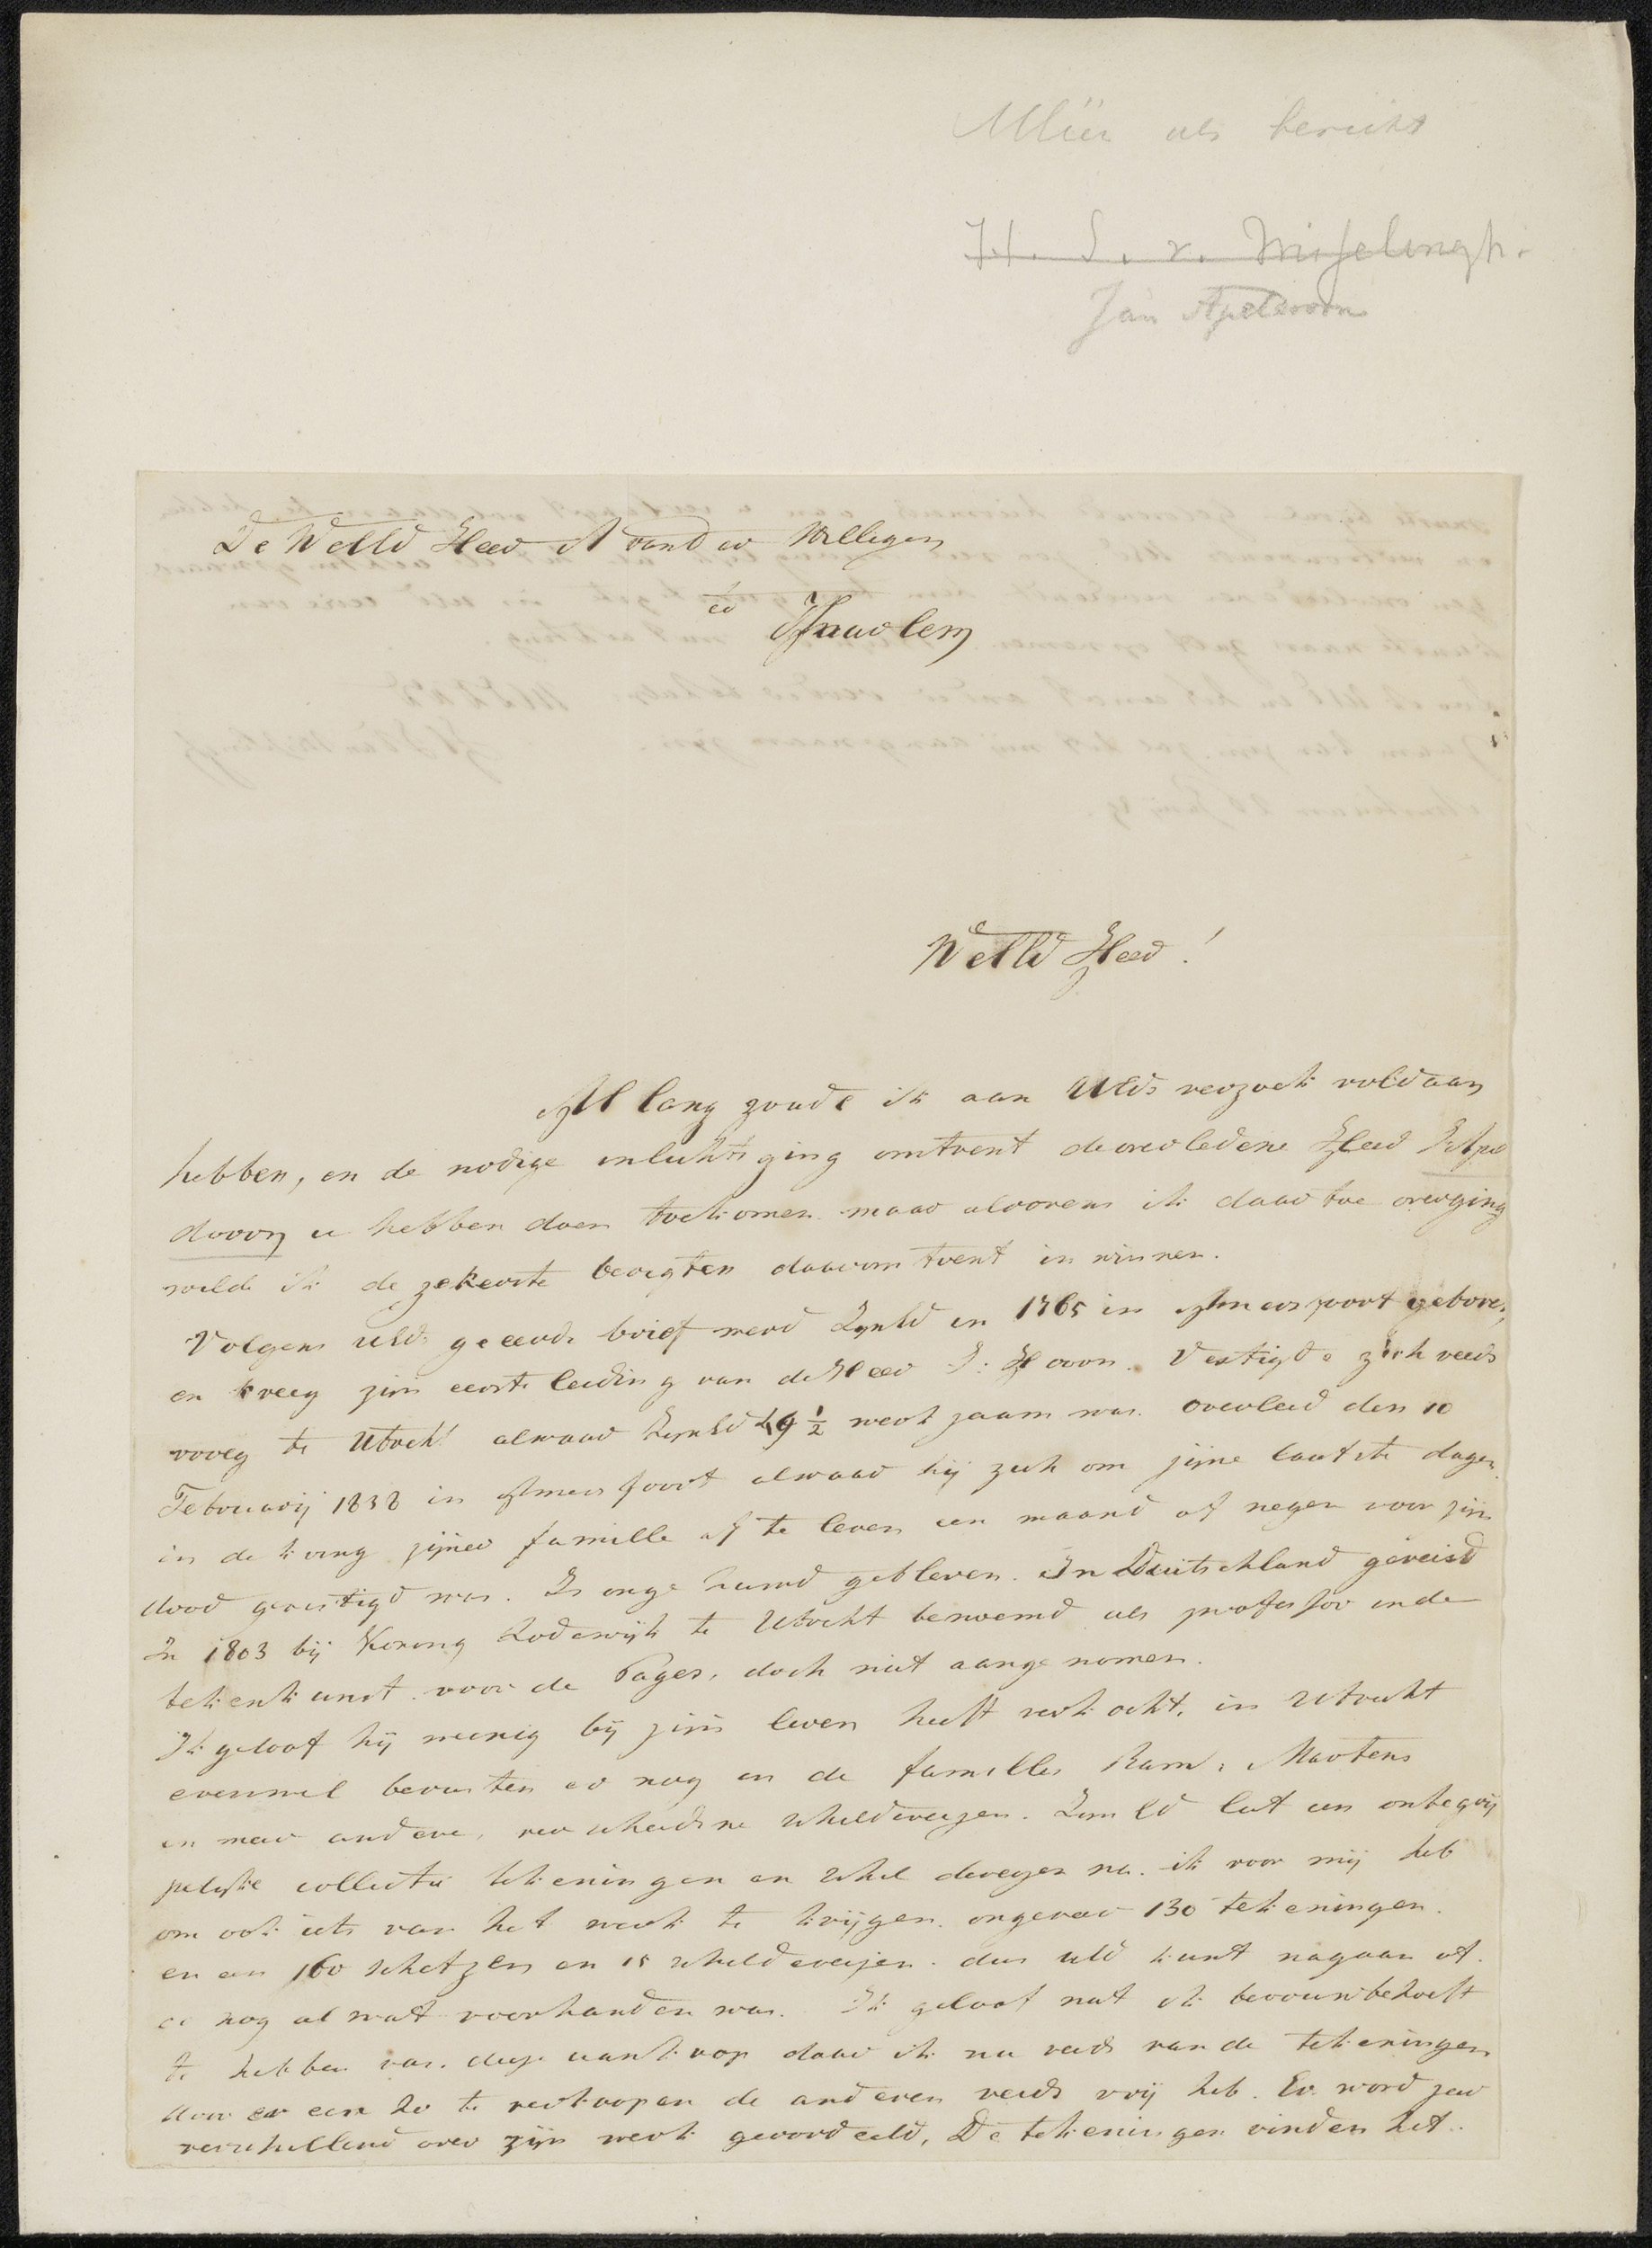 Alleen als bericht
H. S. v. Wisselingh.
Jan Apeldoorn
De WelEd Heer A vander Willigen
te
Haarlem
WelEd Heer!
Al lang zoude ik aan UEds verzoek voldaan
hebben, en de nodige inlichtiging omtrent de overledene Heer J: Apel
doorn u hebben doen toekomen. maar alvorens ik daar toe overging
wilde ik de zekerste berigten daaromtrent in winnen.
Volgens UEds geeerde brief werd ZynEd in 1765 in Amersfoort geboren,
en kreeg zijn eerste leiding van de Heer J: Hoorn. Vestigde zich reeds
vroeg te Utrecht alwaar ZynEd 49 ½ werkzaam was. overleed den 10
Februarij 1838 in Amersfoort alwaar hij zich om zijne laatste dagen
in de kring zijner famille af te leven een maand of negen voor zijn
dood gevestigd was. Is ongehuwd gebleven. In Duitschland gereisd
In 1803 bij Koning Lodewijk te Utrecht benoemd als professor in de
tekenkunst voor de Pages, doch niet aangenomen.
Ik geloof hij weinig bij zijn leven heeft verkocht, in Utrecht
evenwel berusten er nog en de famillen Ram, Martens
en meer andere, verscheidene schilderijen. ZynEd laat een onbegrij
pelijke collectie tekeningen en schilderijen na. ik voor mij heb
om ook iets van het werk te krijgen. ongeveer 130 tekeningen.
en en 160 schetzen en 15 schilderijen. dus UEd kunt nagaan of
er nog al wat voorhanden was. Ik geloof niet ik berouw behoeft
te hebben van deze aankoop daar ik nu reeds van de tekeningen
door er een 20 te verkoopen de anderen reeds vrij heb. Er word zeer
verschillend over zijn werk geoordeeld, De tekeningen vinden het